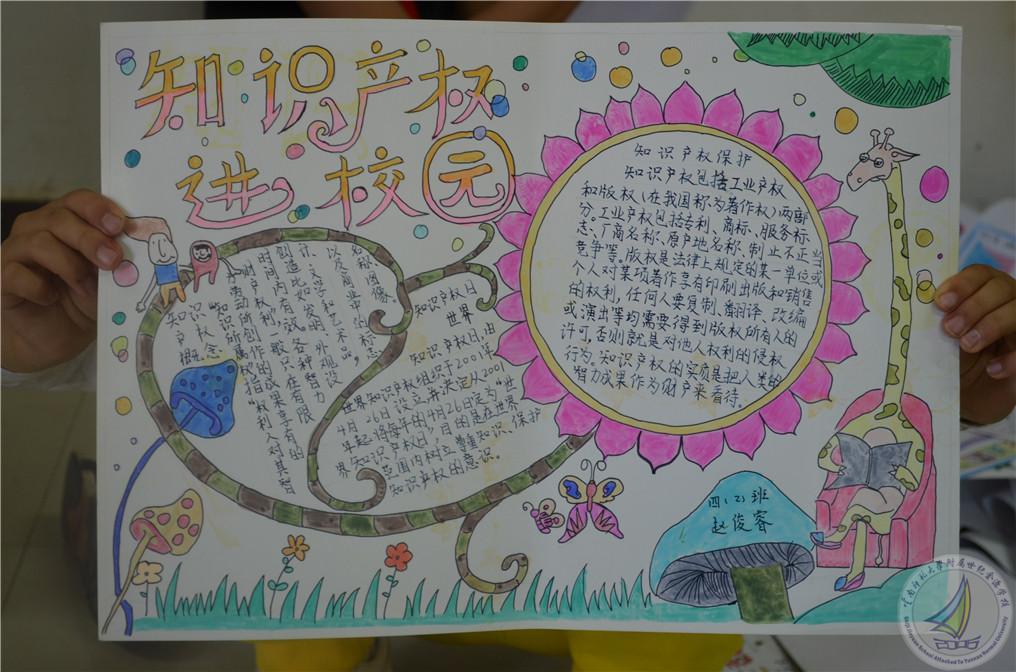 知识产权
进校园
知识产权概念
“知识所属权”指“权利人对其智
力劳动所创作的成果享有的
财产权利”,一般只在有限
时间内有效。各种智力
创造比如发明、外观设
计、文学和艺术作品,
以及商业中的标志、
名称、图像
世界
知识产权日
知识产权日由
世界知识产权组织于2001年
4月26日设立,并决定从2001
年起将每年的4月26日定为“世
界知识产权日”,目的是在世界
范围内树立尊重知识、保护
知识产权的意识。
知识产权保护
知识产权包括工业产权
和版权(在我国称为著作权)两部
分。工业产权包括专利、商标、服务标
志、厂商名称、原产地名称、制止不正当
竞争等。版权是法律上规定的某一单位或
个人对某项著作享有印刷出版和销售
的权利,任何人要复制、翻译、改编
或演出等均需要得到版权所有人的
许可,否则就是对他人权利的侵权
行为。知识产权的实质是把人类的
智力成果作为财产来看待。
四(2)班
赵俊睿